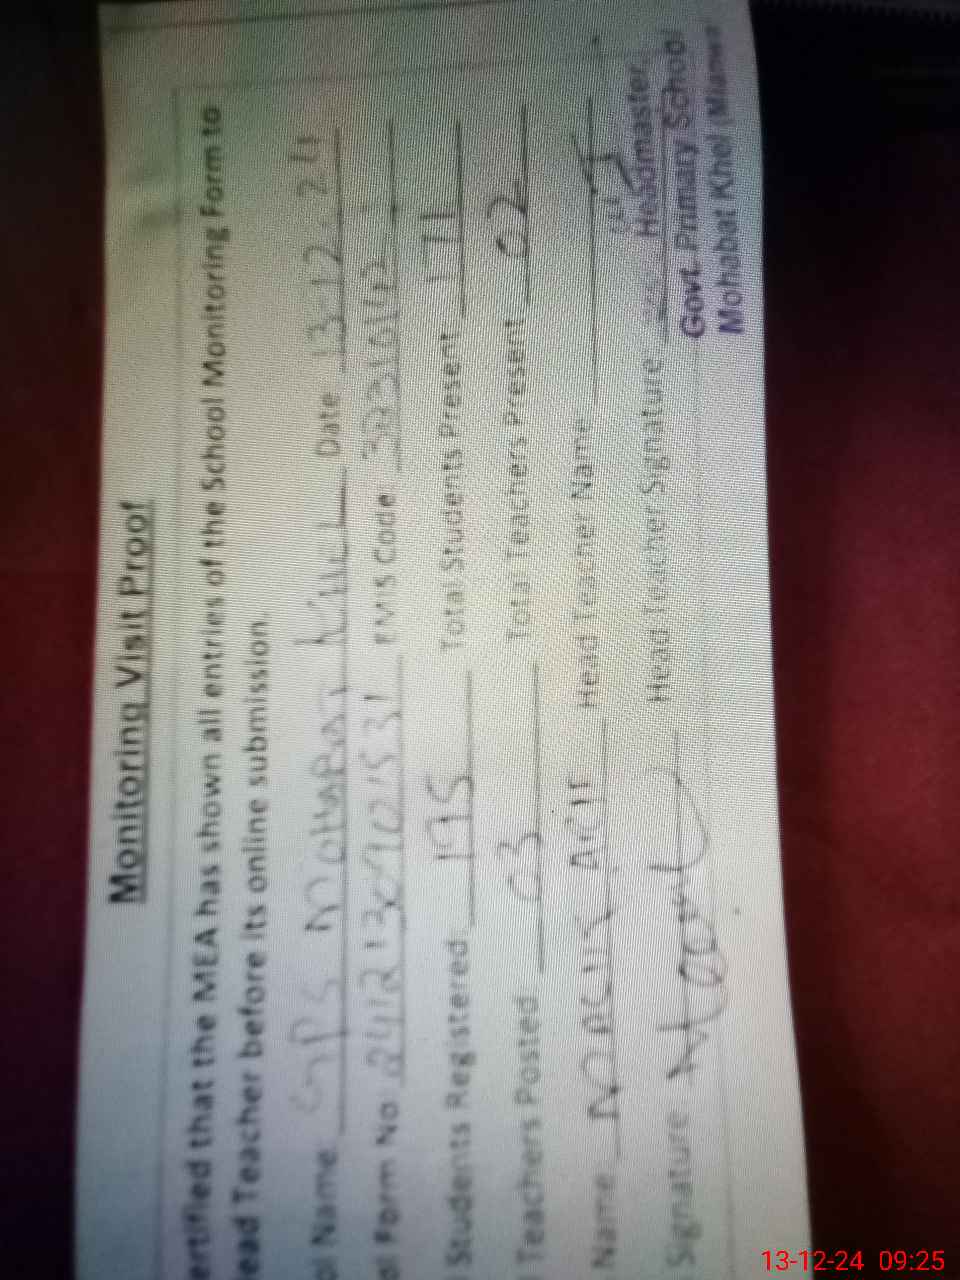 Monitoring Visit Proof
ertified that the MEA has shown all entries of the School Monitoring Form to
ead Teacher before its online submission.
ol Name: GPS MOHABAT KHEL Date 13-12-24
ol Form No: EMIS Code:
Students Registered: 195 Total Students Present 171
Teachers Posted 03 Total Teachers Present 02
Name Head Teacher Name
Signature Head Teacher Signature
Headmaster
Govt. Primary School
Mohabat Khel
13-12-24 09:25